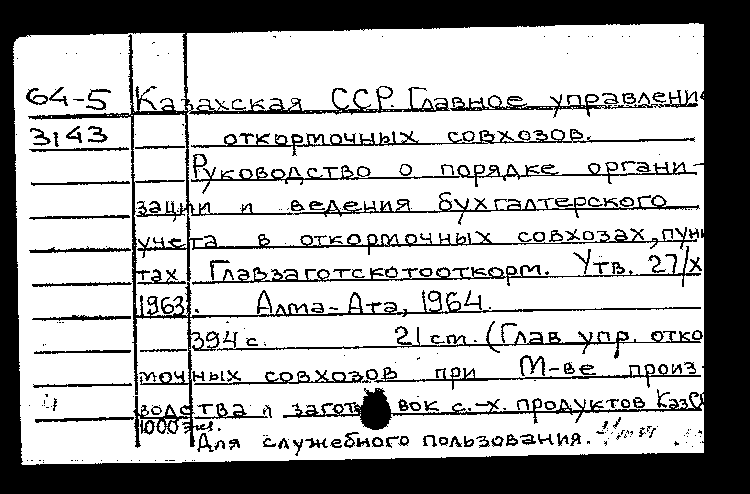 64-5 Казахская ССР. Главное управлени
3143 откормочных совхозов.
Руководство о порядке органи-
зации и ведения бухгалтерского
учета в откормочных совхозах, пун
тах Главзаготскотооткорм. Утв. 27/X
1963. Алма-Ата, 1964.
394 с. 21 ст. (Глав упр. отко
мочных совхозов при М-ве произ-
водства и заготовок с.-х. продуктов КазС
1000 экз.
Для служебного пользования.